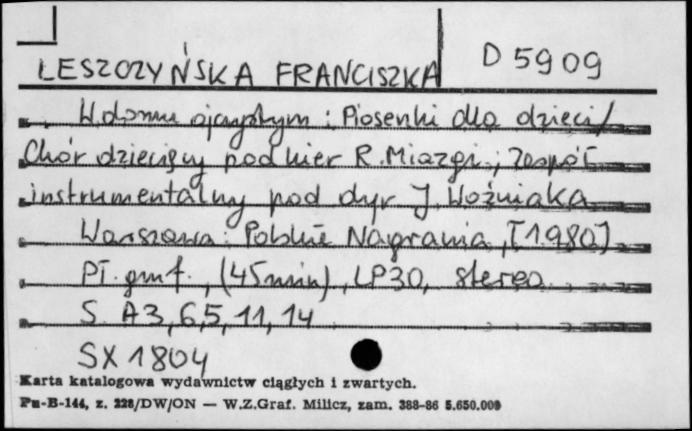 LESZCZYŃSKA FRANCISZKA D 5909
W domu ojczystym : Piosenki dla dzieci /
Chór dziecięcy pod kier R. Miazgi, Zespół
instrumentalny pod dyr J. Woźniaka
Warszawa : Polskie Nagrania, [1980]
Pł. gmf., (45 min), LP30, stereo
S. A3, 6, 5, 11, 14
SX 1804
Karta katalogowa wydawnictw ciągłych i zwartych.
Pu-B-144, z. 228/DW/ON — W.Z.Graf. Milicz, zam. 388-86 5.650.000